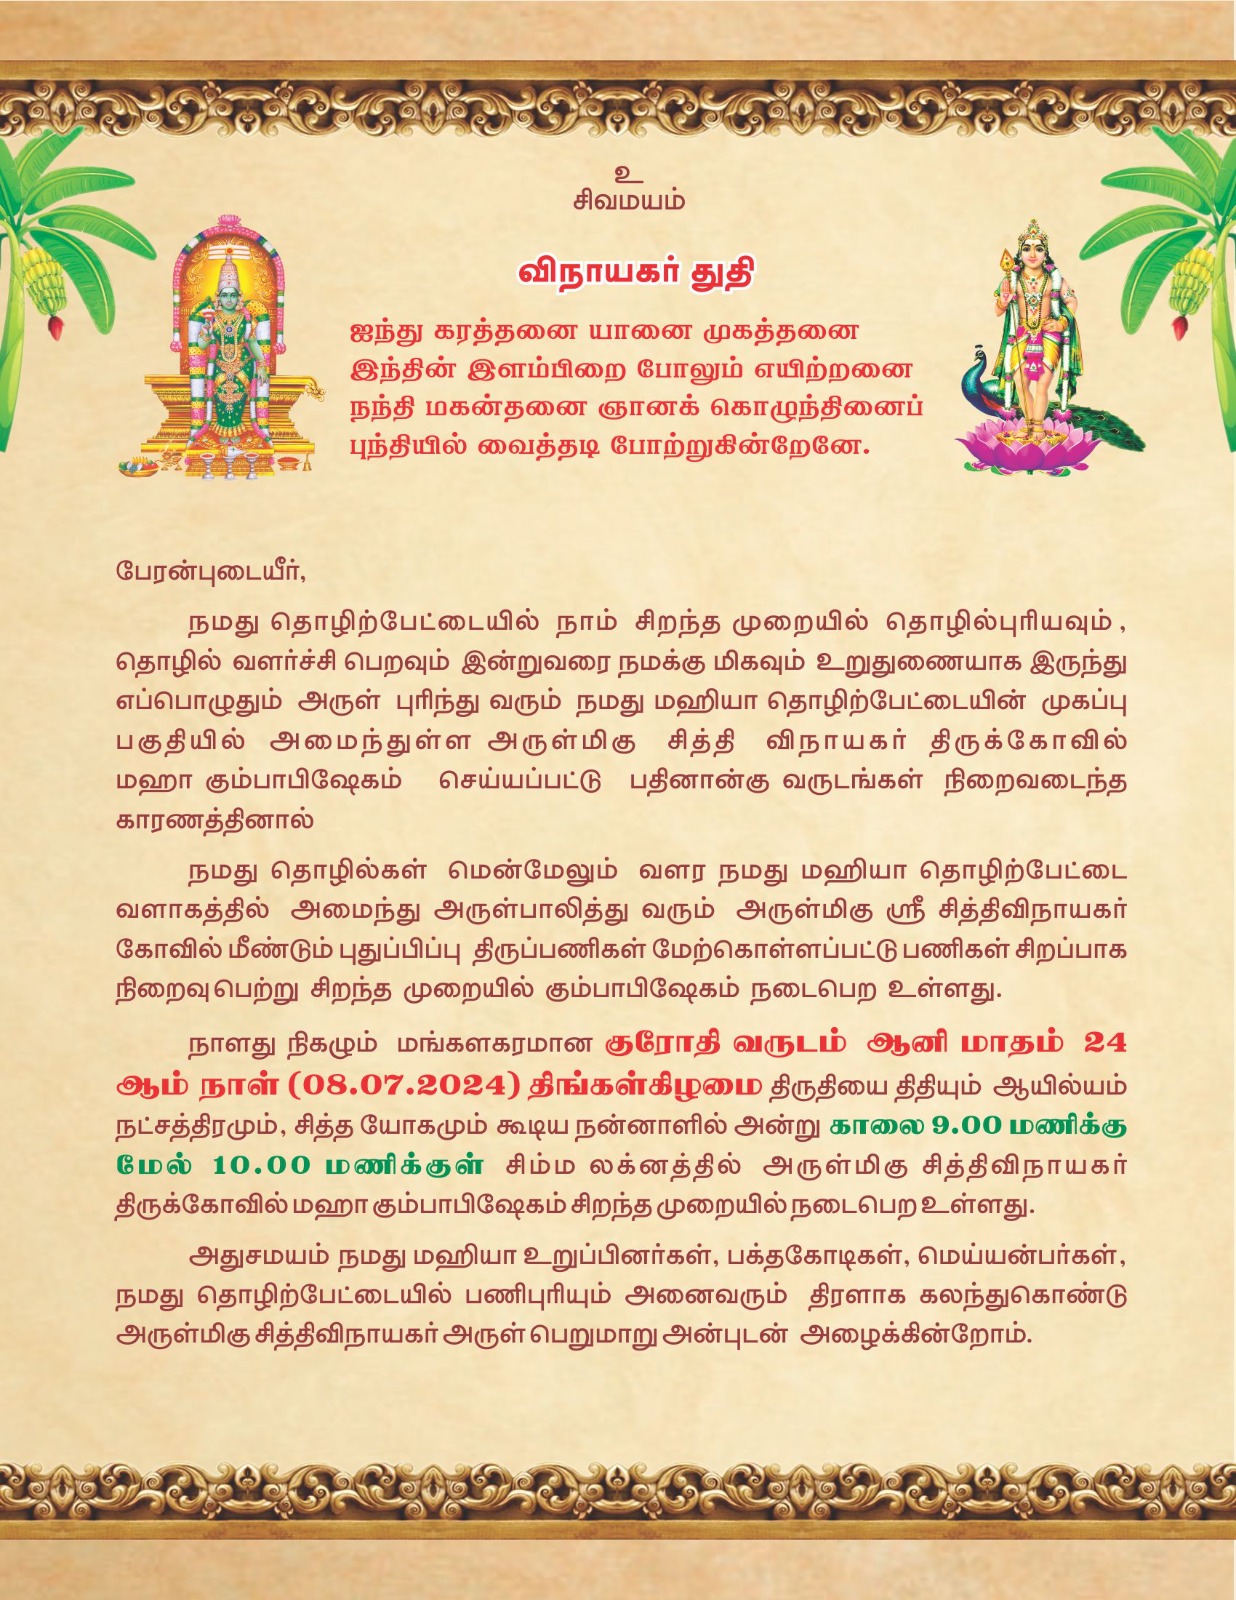 உ
சிவமயம்
விநாயகர் துதி
ஐந்து கரத்தனை யானை முகத்தனை
இந்தின் இளம்பிறை போலும் எயிற்றனை
நந்தி மகன்தனை ஞானக் கொழுந்தினைப்
புந்தியில் வைத்தடி போற்றுகின்றேனே.
பேரன்புடையீர்,
நமது தொழிற்பேட்டையில் நாம் சிறந்த முறையில் தொழில்புரியவும் ,
தொழில் வளர்ச்சி பெறவும் இன்றுவரை நமக்கு மிகவும் உறுதுணையாக இருந்து
எப்பொழுதும் அருள் புரிந்து வரும் நமது மஹியா தொழிற்பேட்டையின் முகப்பு
பகுதியில் அமைந்துள்ள அருள்மிகு சித்தி விநாயகர் திருக்கோவில்
மஹா கும்பாபிஷேகம் செய்யப்பட்டு பதினான்கு வருடங்கள் நிறைவடைந்த
காரணத்தினால்
நமது தொழில்கள் மென்மேலும் வளர நமது மஹியா தொழிற்பேட்டை
வளாகத்தில் அமைந்து அருள்பாலித்து வரும் அருள்மிகு ஸ்ரீ சித்திவிநாயகர்
கோவில் மீண்டும் புதுப்பிப்பு திருப்பணிகள் மேற்கொள்ளப்பட்டு பணிகள் சிறப்பாக
நிறைவு பெற்று சிறந்த முறையில் கும்பாபிஷேகம் நடைபெற உள்ளது.
நாளது நிகழும் மங்களகரமான குரோதி வருடம் ஆனி மாதம் 24
ஆம் நாள் (08.07.2024) திங்கள்கிழமை திருதியை திதியும் ஆயில்யம்
நட்சத்திரமும், சித்த யோகமும் கூடிய நன்னாளில் அன்று காலை 9.00 மணிக்கு
மேல் 10.00 மணிக்குள் சிம்ம லக்னத்தில் அருள்மிகு சித்திவிநாயகர்
திருக்கோவில் மஹா கும்பாபிஷேகம் சிறந்த முறையில் நடைபெற உள்ளது.
அதுசமயம் நமது மஹியா உறுப்பினர்கள், பக்தகோடிகள், மெய்யன்பர்கள்,
நமது தொழிற்பேட்டையில் பணிபுரியும் அனைவரும் திரளாக கலந்துகொண்டு
அருள்மிகு சித்திவிநாயகர் அருள் பெறுமாறு அன்புடன் அழைக்கின்றோம்.